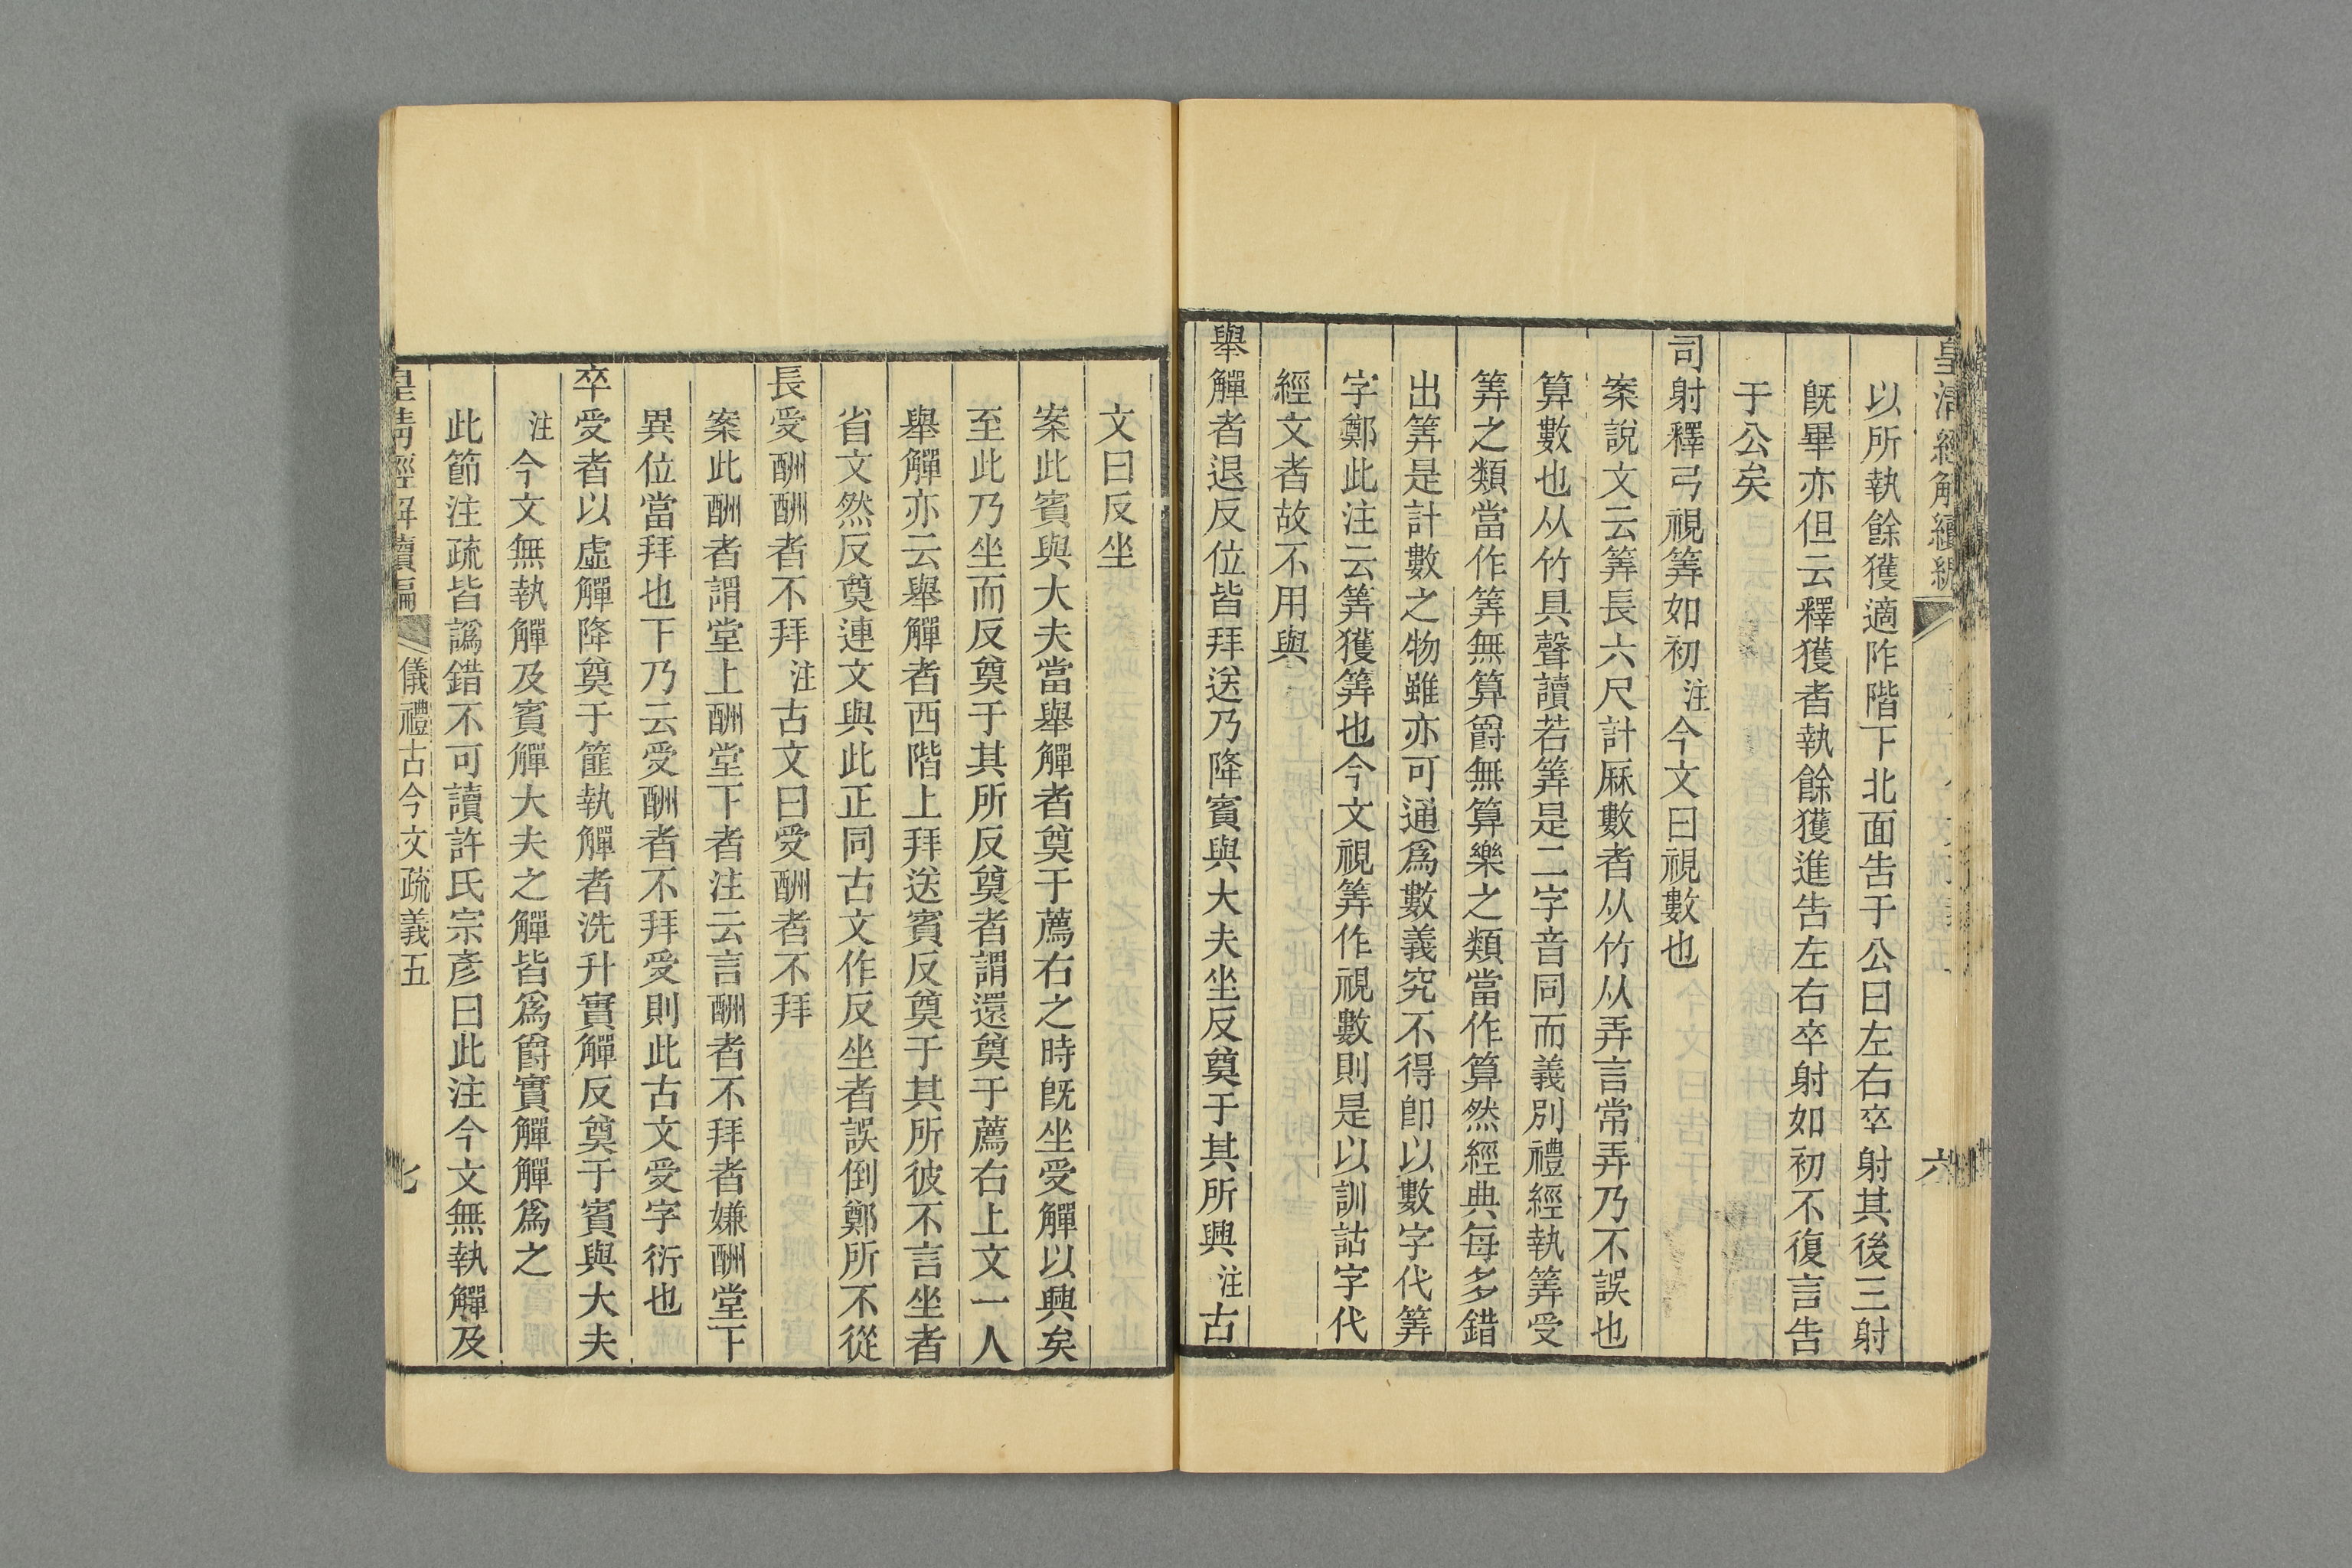 皇清經解續編
六
以所執餘獲適阼階下北面告于公曰左右卒射其後三射
旣畢亦但云釋獲者執餘獲進告左右卒射如初不復言告
于公矣
司射釋弓視筭如初注今文曰視數也
案說文云筭長六尺計厤數者从竹从弄言常弄乃不誤也
算數也从竹具聲讀若筭是二字音同而義別禮經執筭受
筭之類當作筭無算爵無算樂之類當作算然經典每多錯
出筭是計數之物雖亦可通爲數義究不得卽以數字代筭
字鄭此注云筭獲筭也今文視筭作視數則是以訓詁字代
經文者故不用與
舉觶者退反位皆拜送乃降賓與大夫坐反奠于其所興注古
文曰反坐
案此賓與大夫當舉觶者奠于薦右之時旣坐受觶以興矣
至此乃坐而反奠于其所反奠者謂還奠于薦右上文一人
舉觶亦云舉觶者西階上拜送賓反奠于其所彼不言坐者
省文然反奠連文與此正同古文作反坐者誤倒鄭所不從
長受酬酬者不拜注古文曰受酬者不拜
案此酬者謂堂上酬堂下者注云言酬者不拜者嫌酬堂下
異位當拜也下乃云受酬者不拜受則此古文受字衍也
卒受者以虛觶降奠于篚執觶者洗升實觶反奠于賓與大夫
注今文無執觶及賓觶大夫之觶皆爲爵實觶觶爲之
此節注疏皆譌錯不可讀許氏宗彥曰此注今文無執觶及
皇清經解續編
儀禮古今文疏義五
七